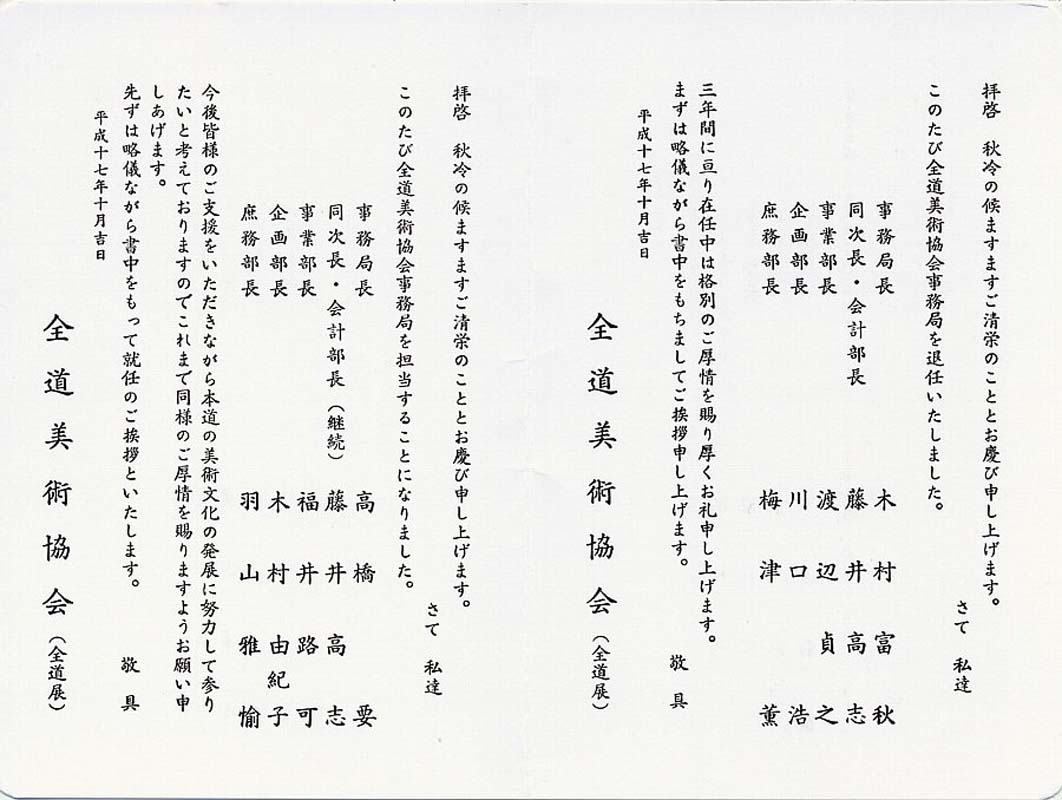 拝啓　秋冷の候ますますご清栄のこととお慶び申し上げます。
さて　私達
このたび全道美術協会事務局を退任いたしました。
事務局長　木村富秋
同次長・会計部長　藤井高志
事業部長　渡辺貞之
企画部長　川口浩
庶務部長　梅津薫
三年間に亘り在任中は格別のご厚情を賜り厚くお礼申し上げます。
まずは略儀ながら書中をもちましてご挨拶申し上げます。　敬具
平成十七年十月吉日
全道美術協会（全道展）
拝啓　秋冷の候ますますご清栄のこととお慶び申し上げます。
さて　私達
このたび全道美術協会事務局を担当することになりました。
事務局長　高橋要
同次長・会計部長（継続）　藤井高志
事業部長　福井路可
企画部長　木村由紀子
庶務部長　羽山雅愉
今後皆様のご支援をいただきながら本道の美術文化の発展に努力して参り
たいと考えておりますのでこれまで同様のご厚情を賜りますようお願い申
しあげます。
先ずは略儀ながら書中をもって就任のご挨拶といたします。　敬具
平成十七年十月吉日
全道美術協会（全道展）